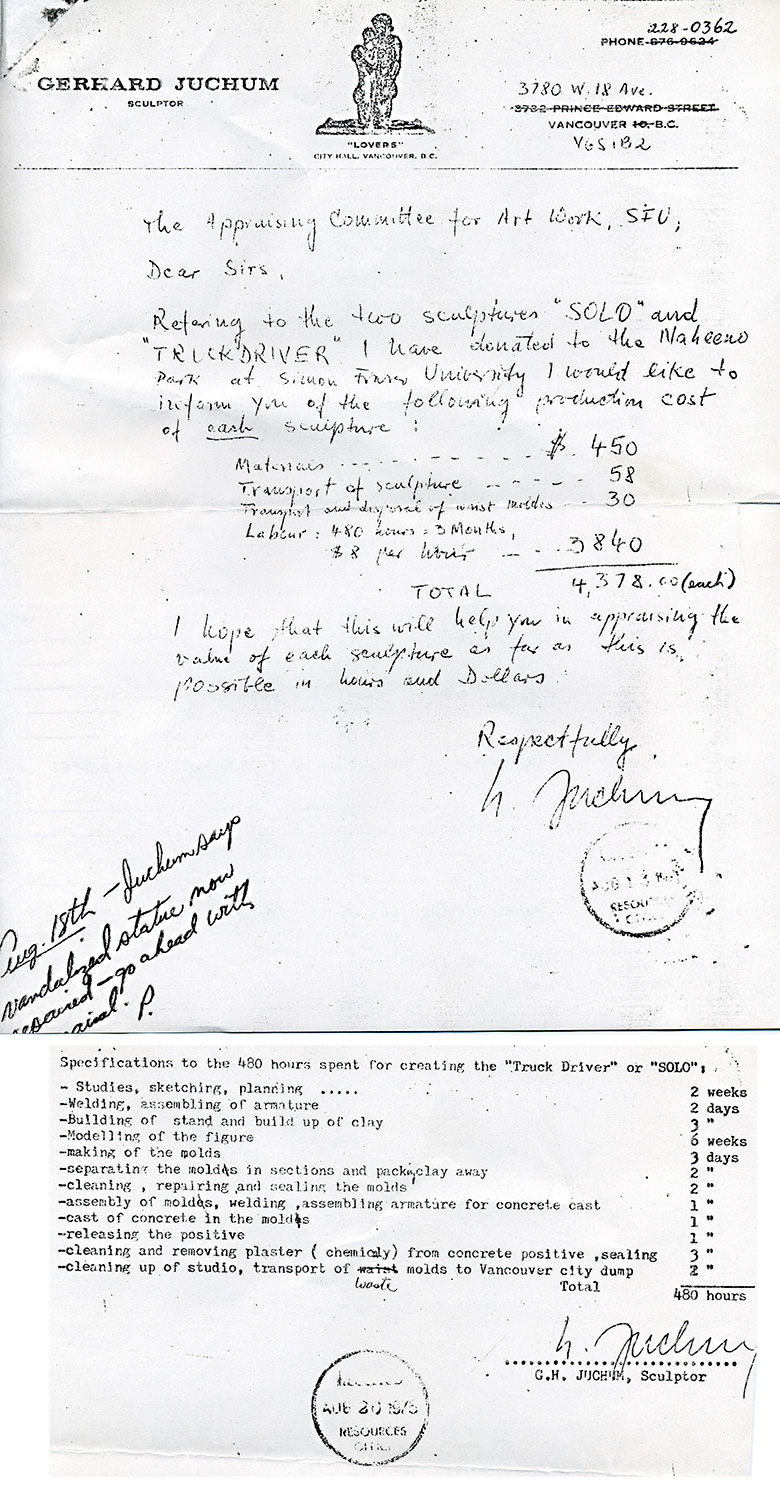 228-0362
PHONE 876-9624
GERHARD JUCHUM
SCULPTOR
3780 W. 18 Ave.
3732 PRINCE EDWARD STREET
VANCOUVER 10, B.C.
V6S1B2
"LOVERS"
CITY HALL, VANCOUVER, B.C.
The Appraising Committee for Art Work, SFU;
Dear Sirs,
Refering to the two sculptures "SOLO" and
"TRUCKDRIVER" I have donated to the Naheeno
Park at Simon Fraser University I would like to
inform you of the following production cost
of each sculpture :
Materials - - - - - - - - $ 450
Transport of sculpture - - - - - 58
Transport and disposal of waist moldes - - 30
Labour : 480 hours = 3 Months,
$8 per hour - - - 3840
TOTAL 4,378.00 (each)
I hope that this will help you in appraising the
value of each sculpture as far as this is
possible in hours and Dollars.
Respectfully
h. Juchum
AUG 13
RESOURCES
OFFICE
Aug. 18th - Juchum says
vandalized statue now
repaired - go ahead with
P.
Specifications to the 480 hours spent for creating the "Truck Driver" or "SOLO";
- Studies, sketching, planning ..... 2 weeks
-Welding, assembling of armature 2 days
-Building of stand and build up of clay 3 "
-Modelling of the figure 6 weeks
-making of the molds 3 days
-separating the molds in sections and pack clay away 2 "
-cleaning , repairing and sealing the molds 2 "
-assembly of molds, welding ,assembling armature for concrete cast 1 "
-cast of concrete in the molds 1 "
-releasing the positive 1 "
-cleaning and removing plaster ( chemicaly) from concrete positive ,sealing 3 "
-cleaning up of studio, transport of waist molds to Vancouver city dump 2 "
waste
Total 480 hours
h. Juchum
G.H. JUCHUM, Sculptor
AUG 20 1975
RESOURCES
OFFICE